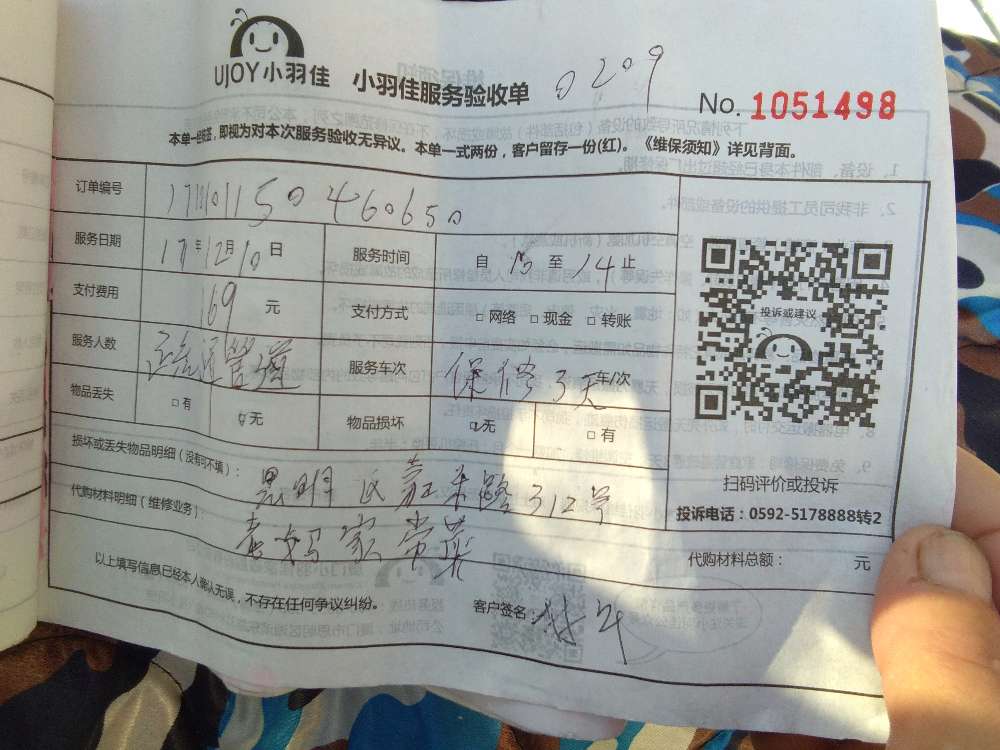 UJOY小羽佳 小羽佳服务验收单 0209
No. 1051498
本单一经签，即视为对本次服务验收无异议。本单一式两份，客户留存一份(红)。《维保须知》详见背面。
订单编号
服务日期 17年12月10日 服务时间 自 13 至 14 止
支付费用 169 元 支付方式 □网络 □现金 □转账
服务人数 服务车次 保修3天 车/次
物品丢失 □有 ☑无 物品损坏 ☑无 □有
投诉或建议
扫码评价或投诉
投诉电话：0592-5178888转2
损坏或丢失物品明细（没有可不填）： 思明区嘉禾路312号
代购材料明细（维修业务）： 老妈家常菜
代购材料总额： 元
以上填写信息已经本人确认无误，不存在任何争议纠纷。 客户签名：